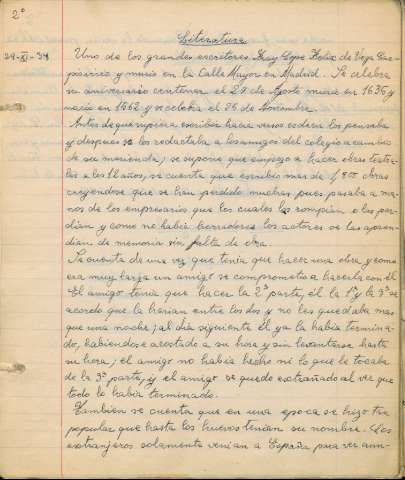 2º
Literatura
29-XI-34
Uno de los grandes escritores Fray Lope Felix de Vega Car-
pio vivio y murio en la Calle Mayor en Madrid. Se celebra
su aniversario centenar el 27 de Agosto murio en 1635 y
nacio en 1562 y se celebra el 26 de Noviembre.
Antes de que supiera escribir hacia versos es decir los pensaba
y despues se los redactaba a los amigos del colegio a cambio
de su merienda; se supone que empezo a hacer obras teatra-
les a los 12 años, se cuenta que escribio mas de 1,800 obras
creyendose que se han perdido muchas pues pasaba a ma-
nos de los empresarios que los cuales las rompian o las per-
dian y como no habia borradores los actores se las apren-
dian de memoria sin falta de
Se cuenta de una vez que tenia que hacer una obra, y como
era muy larga un amigo se comprometio a hacerla con él
El amigo tenia que hacer la 2ª parte, él la 1ª y la 3ª se
acordo que la harian entre los dos y no les quedaba mas
que una noche; al dia siguiente él ya la habia termina-
do, habiendose acostado a su hora y sin levantarse hasta
su hora; el amigo no habia hecho ni lo que le tocaba
de la 3ª parte, y el amigo se quedo extrañado al ver que
todo lo habia terminado.
Tambien se cuenta que en una epoca se hizo tan
popular que hasta los huevos tenian su nombre. Los
extranjeros solamente venian a España para ver aun-